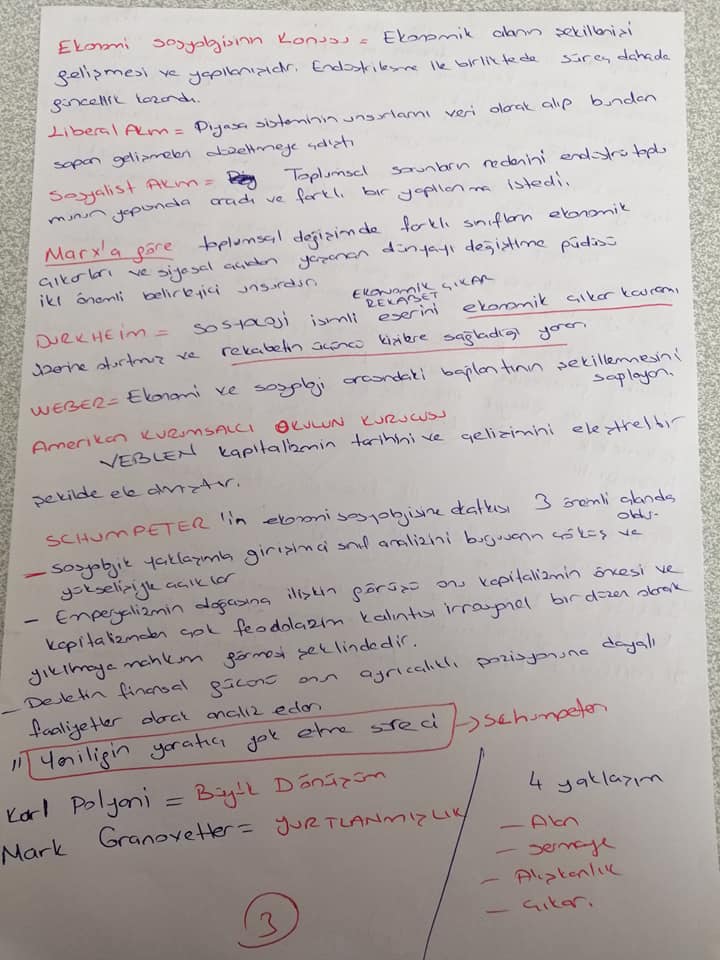 Ekonomi sosyolojisinin Konusu = Ekonomik alanın şekillenişi
gelişmesi ve yapılanışıdır. Endüstrileşme ile birliktede süreç dahada
güncellik kazandı.
Liberal Akım = Piyasa sisteminin unsurlarını veri olarak alıp bundan
sapan gelişmeleri düzeltmeye çalıştı
Sosyalist Akım = Toplumsal sorunların nedenini endüstri toplu
munun yapısında aradı ve farklı bir yapılanma istedi.
Marx'a göre toplumsal değişimde farklı sınıfların ekonomik
çıkarları ve siyasal açıdan yaşanan dünyayı değiştirme güdüsü
iki önemli belirleyici unsurdur.
EKONOMİK ÇIKAR
REKABET
DURKHEİM = sosyoloji isimli eserini ekonomik çıkar kavramı
üzerine oturtmuş ve rekabetin üçüncü kişilere sağladığı yararı
WEBER = Ekonomi ve sosyoloji arasındaki bağlantının şekillenmesini
saplayan.
Amerikan KURUMSALCI OKULUN KURUCUSU
VEBLEN kapitalizmin tarihini ve gelişimini eleştirel bir
şekilde ele almıştır.
SCHUMPETER 'in ekonomi sosyolojisine katkısı 3 önemli alanda
oldu-
– Sosyolojik yaklaşımla girişimci sınıf analizini burjuvanın çöküş ve
yükselişiyle açıklar
– Emperyalizmin doğasına ilişkin görüşü onu kapitalizmin öncesi ve
kapitalizmden çok feodalizim kalıntısı irrasyonel bir düzen olarak
yıkılmaya mahkum görmesi şeklindedir.
– Devletin finansal gücünü onun ayrıcalıklı pozisyonuna dayalı
faaliyetler olarak analiz eden
" Yeniliğin yaratıcı yok etme süreci → Schumpeter
Karl Polyani = Büyük Dönüşüm
Mark Granovetter = YURTLANMIŞLIK
4 yaklaşım
– Alan
– Sermaye
– Alışkanlık
– Çıkar.
3